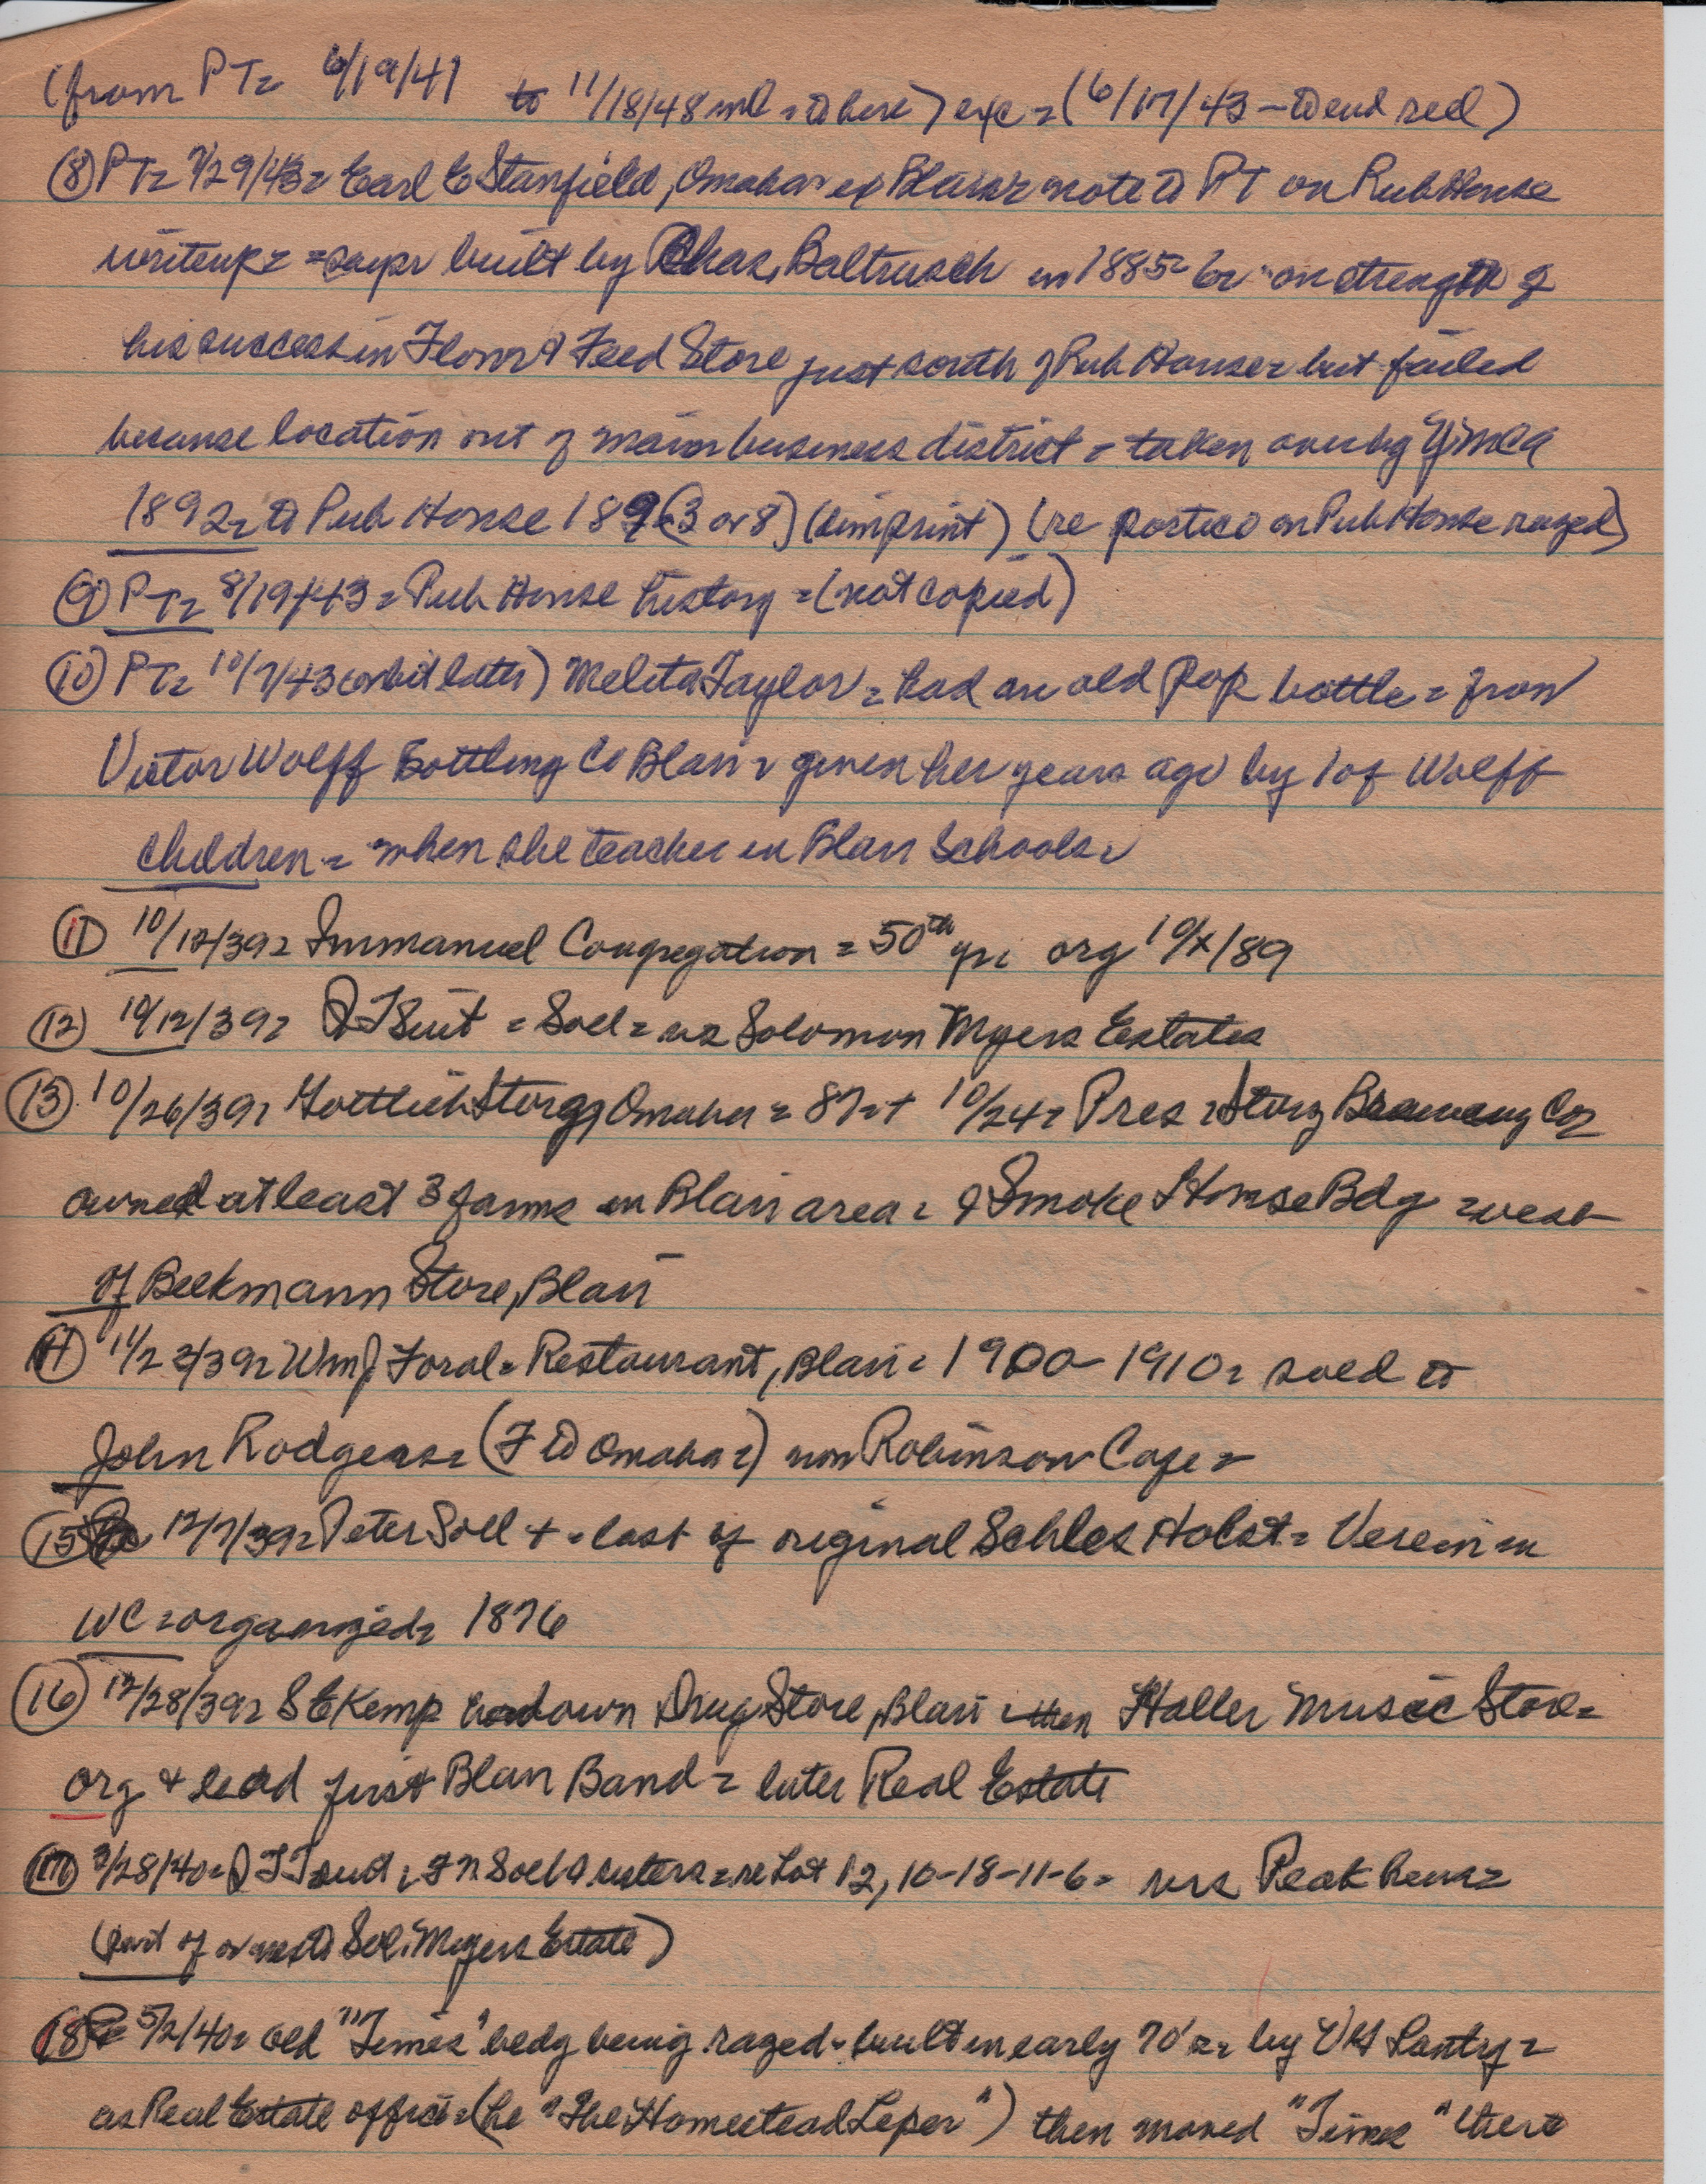 (from PT= 6/19/41 to 11/18/48 incl = to here) exc = (6/17/43 - to end reel)
(8) PT= 7/29/43= Earl E Stanfield, Omaha= ex Blair= note to PT on Pub House
writeup= =says built by Chas, Baltrusch in 1885= on strength of
his success in Flour & Feed Store just south of Pub House= but failed
because location out of main business district = taken over by YMCA
1892= to Pub House 189(3 or 8) (imprint) (re portico on Pub House razed)
(9) PT= 8/19/43= Pub House history = (not copied)
(10) PT= 10/7/43 (or bit later) Melita Taylor = had an old pop bottle = from
Victor Wolff Bottling Co Blair = given her years ago by 1 of Wolff
children = when she teacher in Blair Schools=
(11) 10/12/39= Immanuel Congregation = 50th yr= org 10/x/89
(12) 10/12/39= QT Suit = Soll= vs Solomon Myers Estates
(13) 10/26/39= Gottlieb Storz, Omaha = 87= + 10/24= Pres = Storz Brewing Co=
owned at least 3 farms in Blair area = & Smoke House Bdg =west
of Beekmann Store, Blair
(14) 11/23/39= Wm J Foral= Restaurant, Blair= 1900-1910= sold to
John Rodgers= (F to Omaha=) now Robinson Cafe=
(15) 12/7/39= Peter Soll + = last of original Schles Holst= Verein in
WC =organized= 1876
(16) 12/28/39= S E Kemp own Drug Store, Blair = then Haller Music Store=
org & lead first Blair Band = later Real Estate
(17) 3/28/40= QT Suit, F N Soll & sisters= re Lot 12, 10-18-11-6= vrs Peak Heirs=
(part of Sol. Myers Estate)
(18) 5/2/40= old "Times" bldg being razed= built in early 70's= by VG Lantry=
as Real Estate office= (he "The Homestead Leper") then moved "Times" there